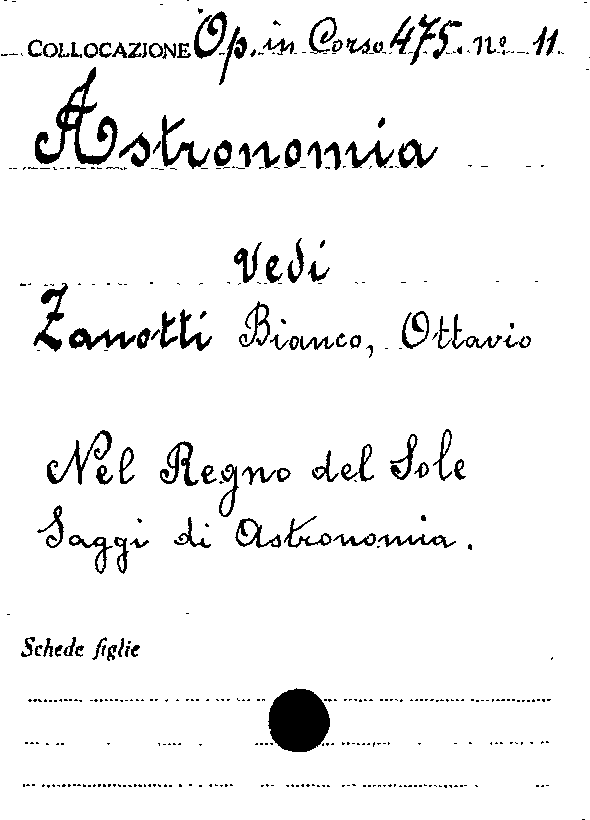 COLLOCAZIONE Op. in Corso 475. nº 11
Astronomia
Vedi
Zanotti Bianco, Ottavio
Nel Regno del Sole
Saggi di Astronomia.
Schede figlie